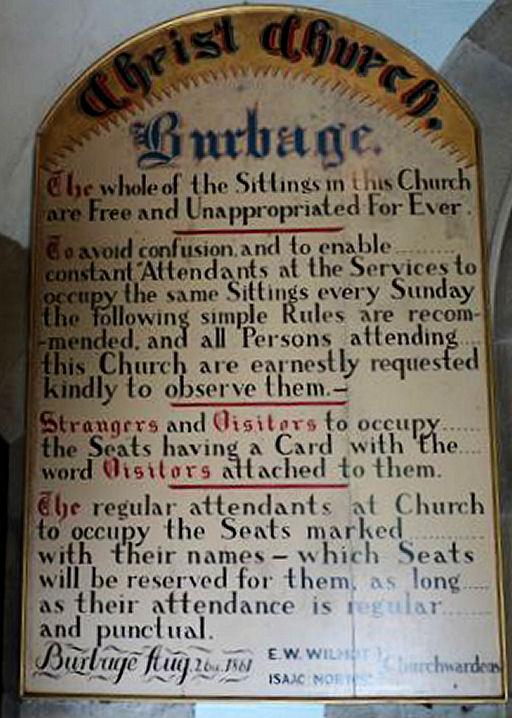 Christ Church.
Burbage.
The whole of the Sittings in this Church
are Free and Unappropriated For Ever.
To avoid confusion, and to enable..........
constant Attendants at the Services to
occupy the same Sittings every Sunday
the following simple Rules are recom-
-mended, and all Persons attending....
this Church are earnestly requested
kindly to observe them.—
Strangers and Visitors to occupy......
the Seats having a Card with the....
word Visitors attached to them.
The regular attendants at Church
to occupy the Seats marked..........
with their names – which Seats
will be reserved for them, as long.....
as their attendance is regular........
and punctual.
Burbage Aug. 1861
E.W. WILMOT
ISAAC
Churchwardens